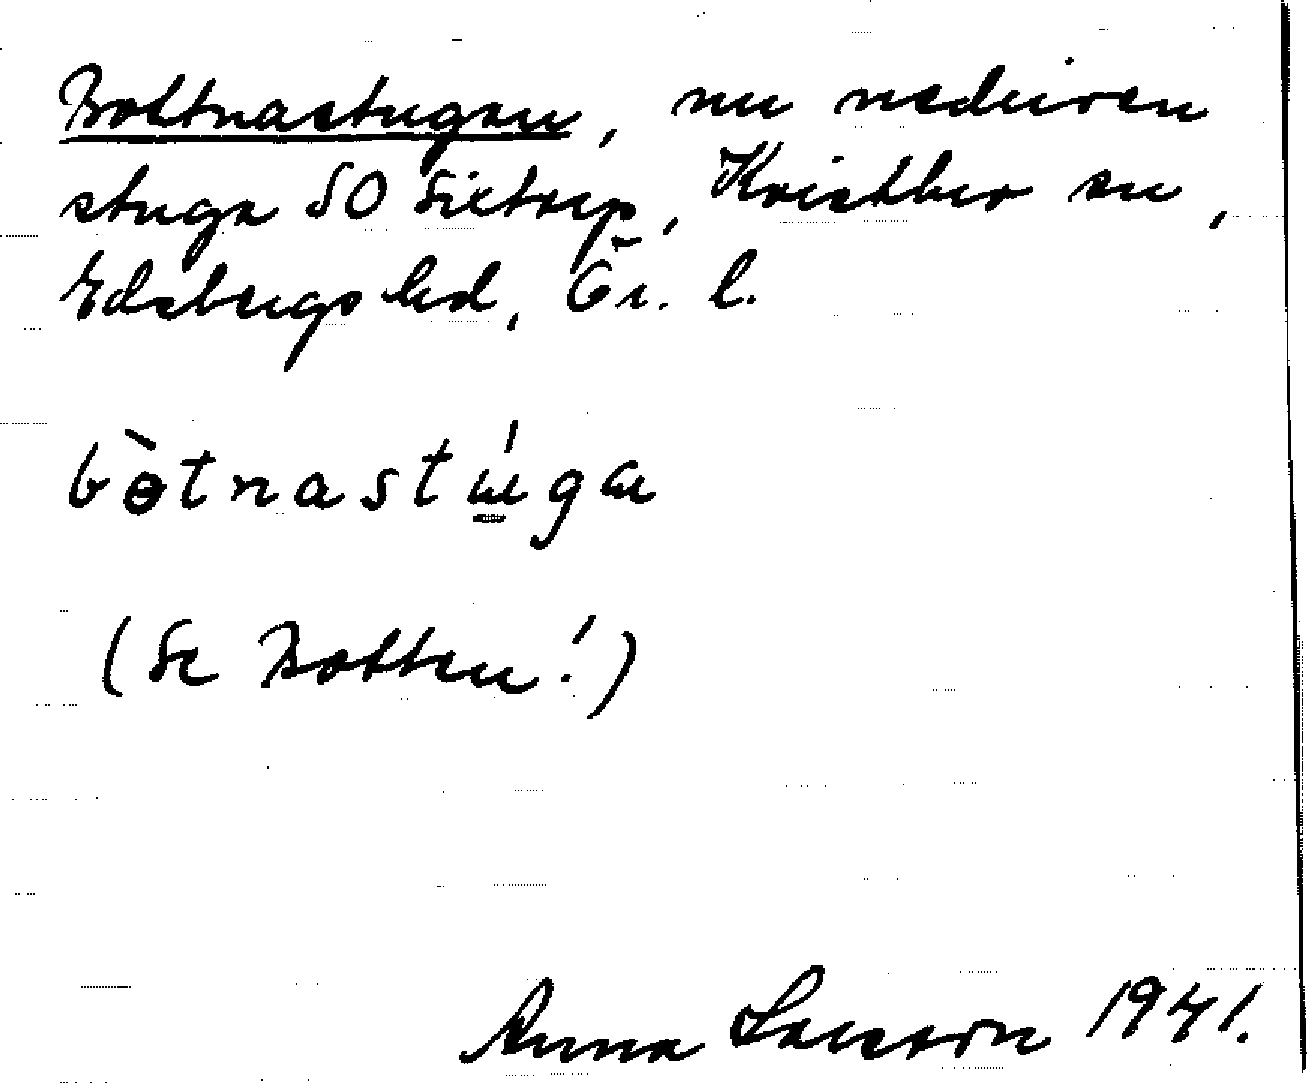 Bottnastugan, nu nedriven
stuga SO Sixtorp, Kvistbro sn,
Edsbergs hd, Ör. l.
bɵ̀tnastɯ́gɯ
(Se Botten!)
Anna Larsson 1941.